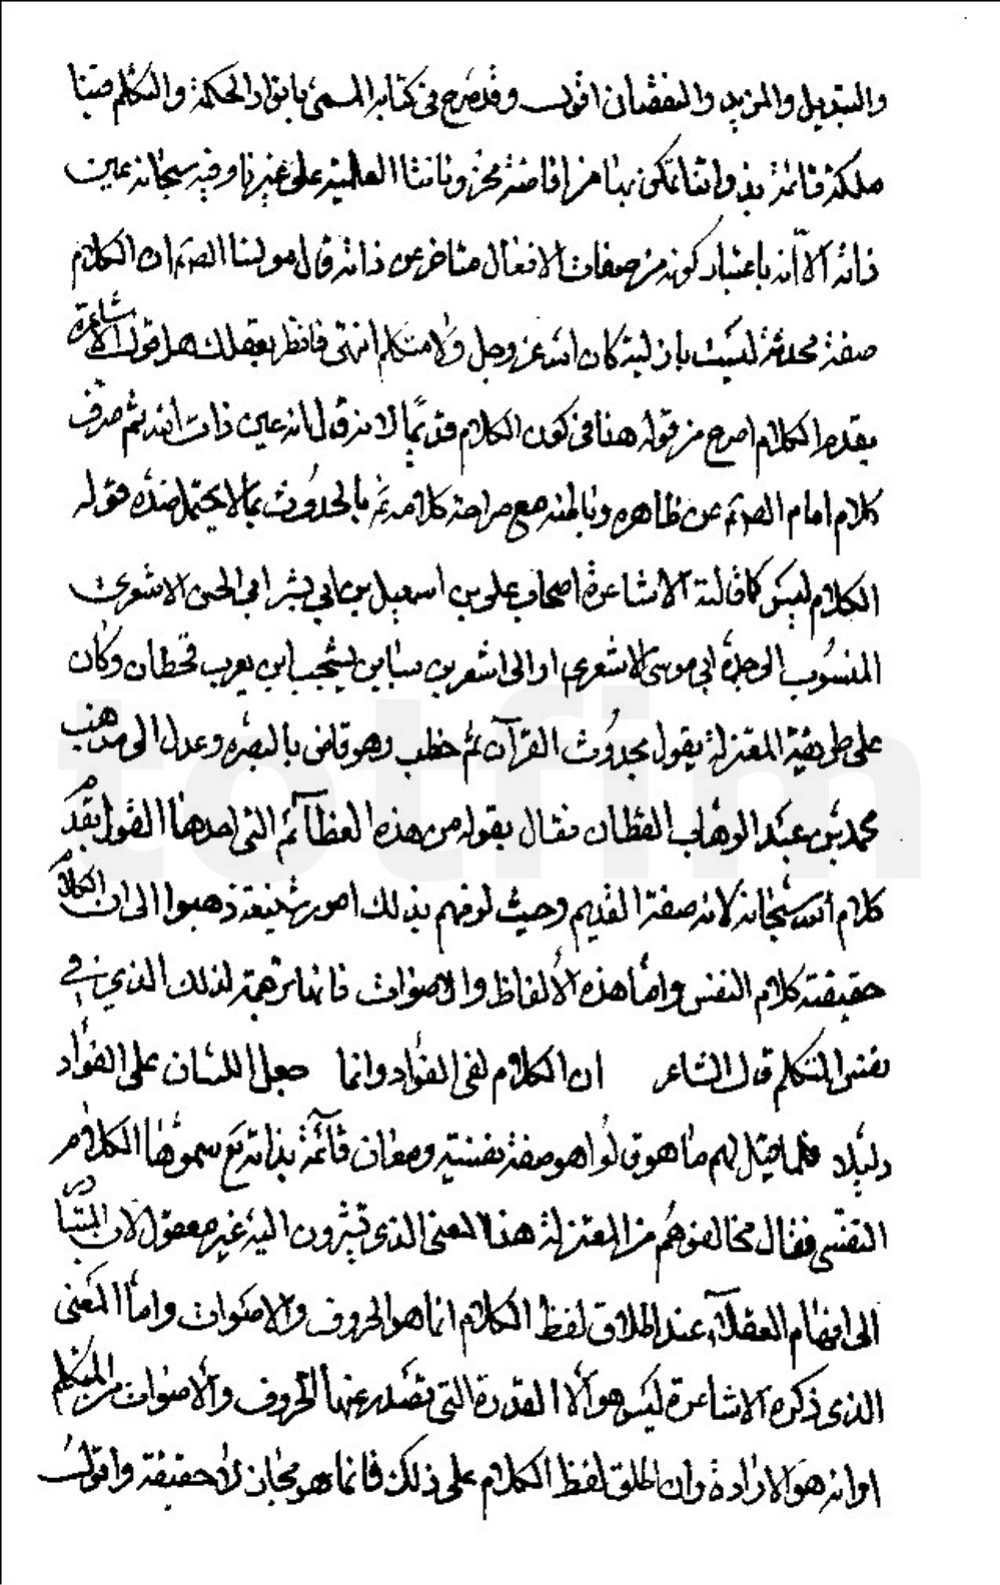 والتبديل والمزيد والنقصان اقول وقد صرح في كتابه المسمى بانوار الحكمة والتكلم فينا
ملكة قائمة بذواتنا نتمكن بها من افاضة مخزوناتنا العلمية على غيرنا وفيه سبحانه عين
ذاته الا انه باعتبار كونه من صفات الافعال متاخر عن ذاته قال مولينا الصم ان الكلام
صفة محدثة ليست بازلية كان الله عز وجل ولا متكلم انتهى فانظر بعقلك هل قول الاشاعرة
بقدم الكلام اصرح من قوله هنا في كون الكلام قديمًا لانه قال انه عين ذات الله ثم صرف
كلام امام الصم عن ظاهره وباطنه مع صراحة كلامه ثم بالحدوث بما لا يحتمل ضده قوله
الكلام ليس كما قالته الاشاعرة اصحاب علي بن اسمعيل بن ابي بشر ابي الحسن الاشعري
المنسوب الى جده ابي موسى الاشعري او الى اشعر بن سبا بن يشجب ابن يعرب قحطان وكان
على طريقة المعتزلة يقول بحدوث القرآن ثم خطب وهو قاض بالبصره وعدل الى مذهب
محمد بن عبد الوهاب القطان فقال بقوله من هذه العظآئم التي احدها القول بقدم
كلام الله سبحانه لانه صفة القديم وحيث لزمهم بذلك امور شنيعة ذهبوا الى ان الكلام
حقيقة كلام النفس واما هذه الالفاظ والاصوات فانها ترجمة لذلك الذي في
نفس المتكلم قال الشاعر ان الكلام لفى الفؤاد وانما جعل اللسان على الفؤاد
دليلا فلما قيل لهم ما هو قالوا هو صفة نفسية ومعان قآئمة بذاته تع سموها الكلام
النفسي فقال مخالفوهم من المعتزلة هذا المعنى الذي تشيرون اليه غير معقول لان المتبادر
الى افهام العقلآء عند اطلاق لفظ الكلام انما هو الحروف والاصوات واما المعنى
الذي ذكره الاشاعرة ليس هو الا القدرة التي تصدر عنها الحروف والاصوات من المتكلم
او انه هو الارادة وان اطلق لفظ الكلام على ذلك فانما هو مجاز لا حقيقة واقول